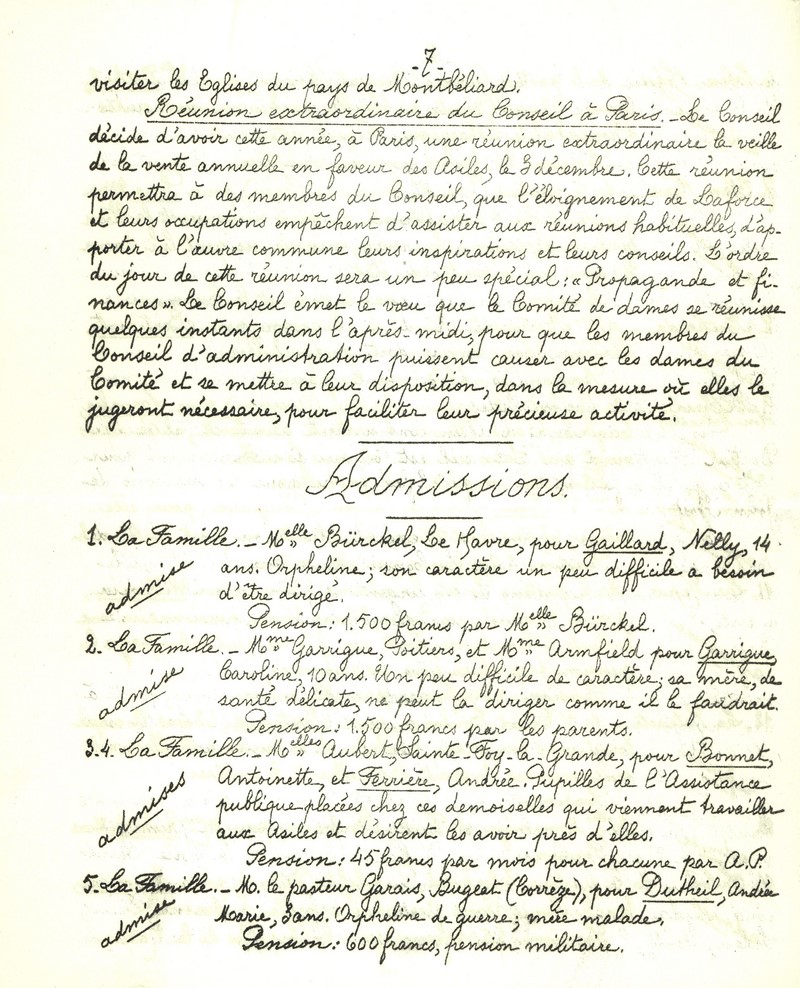 -7-
visiter les Eglises du pays de Montbéliard.
Réunion extraordinaire du Conseil à Paris. _ Le Conseil
décide d'avoir cette année, à Paris, une réunion extraordinaire la veille
de la vente annuelle en faveur des Asiles, le 3 décembre. Cette réunion
permettra à des membres du Conseil, que l'éloignement de Laforce
et leurs occupations empêchent d'assister aux réunions habituelles, d'ap-
porter à l'œuvre commune leurs inspirations et leurs conseils. L'ordre
du jour de cette réunion sera un peu spécial : « Propagande et fi-
nances ». Le Conseil émet le vœu que le Comité de dames se réunisse
quelques instants dans l'après-midi, pour que les membres du
Conseil d'administration puissent causer avec les dames du
Comité et se mettre à leur disposition, dans la mesure où elles le
jugeront nécessaire, pour faciliter leur précieuse activité.
Admissions.
1. La Famille. _ Melle Bürckel, Le Havre, pour Gaillard, Nelly, 14
ans. Orpheline ; son caractère un peu difficile a besoin
admise
d'être dirigé.
Pension : 1.500 francs par Melle Bürckel.
2. La Famille. _ Mme Garrigue, Poitiers, et Mme Armfield pour Garrigue,
Caroline, 10 ans. Un peu difficile de caractère ; sa mère, de
admise
santé délicate, ne peut la diriger comme il le faudrait.
Pension : 1.500 francs par les parents.
3.4. La Famille. _ Melles Aubert, Sainte-Foy-la-Grande, pour Bonnet,
Antoinette, et Ferrière, Andrée. Pupilles de l'Assistance
admises
publique placées chez ces demoiselles qui viennent travailler
aux Asiles et désirent les avoir près d'elles.
Pension : 45 francs par mois pour chacune par A.P.
5. La Famille. _ M. le pasteur Garais, Bugeat (Corrèze), pour Dutheil, Andrée
Marie, 3 ans. Orpheline de guerre ; mère malade.
admise
Pension : 600 francs, pension militaire.